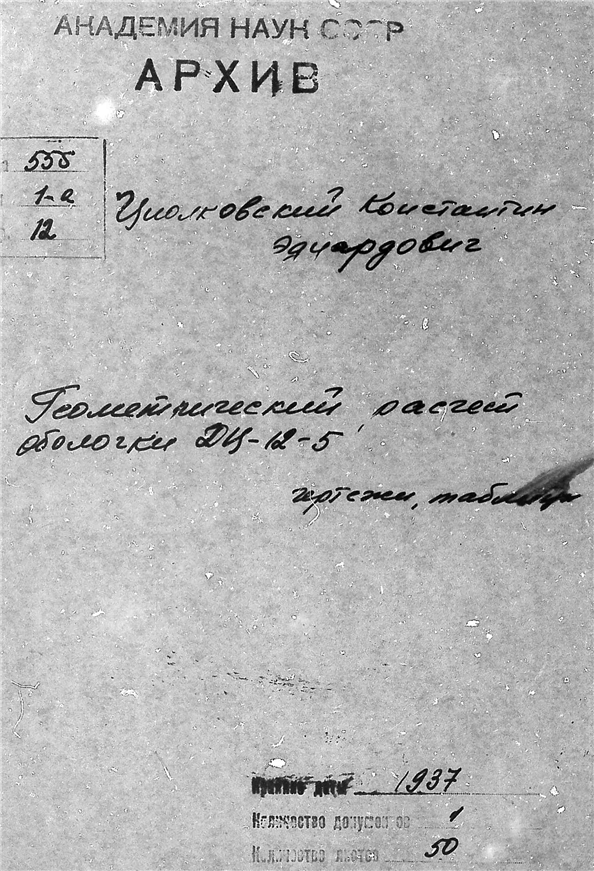 АКАДЕМИЯ НАУК СССР
АРХИВ
555
1-а
12
Циолковский Константин
Эдуардович
Геометрический расчет
оболочки ДЦ-12-5
чертежи, таблицы
Крайние даты 1937
Количество документов 1
Количество листов 50